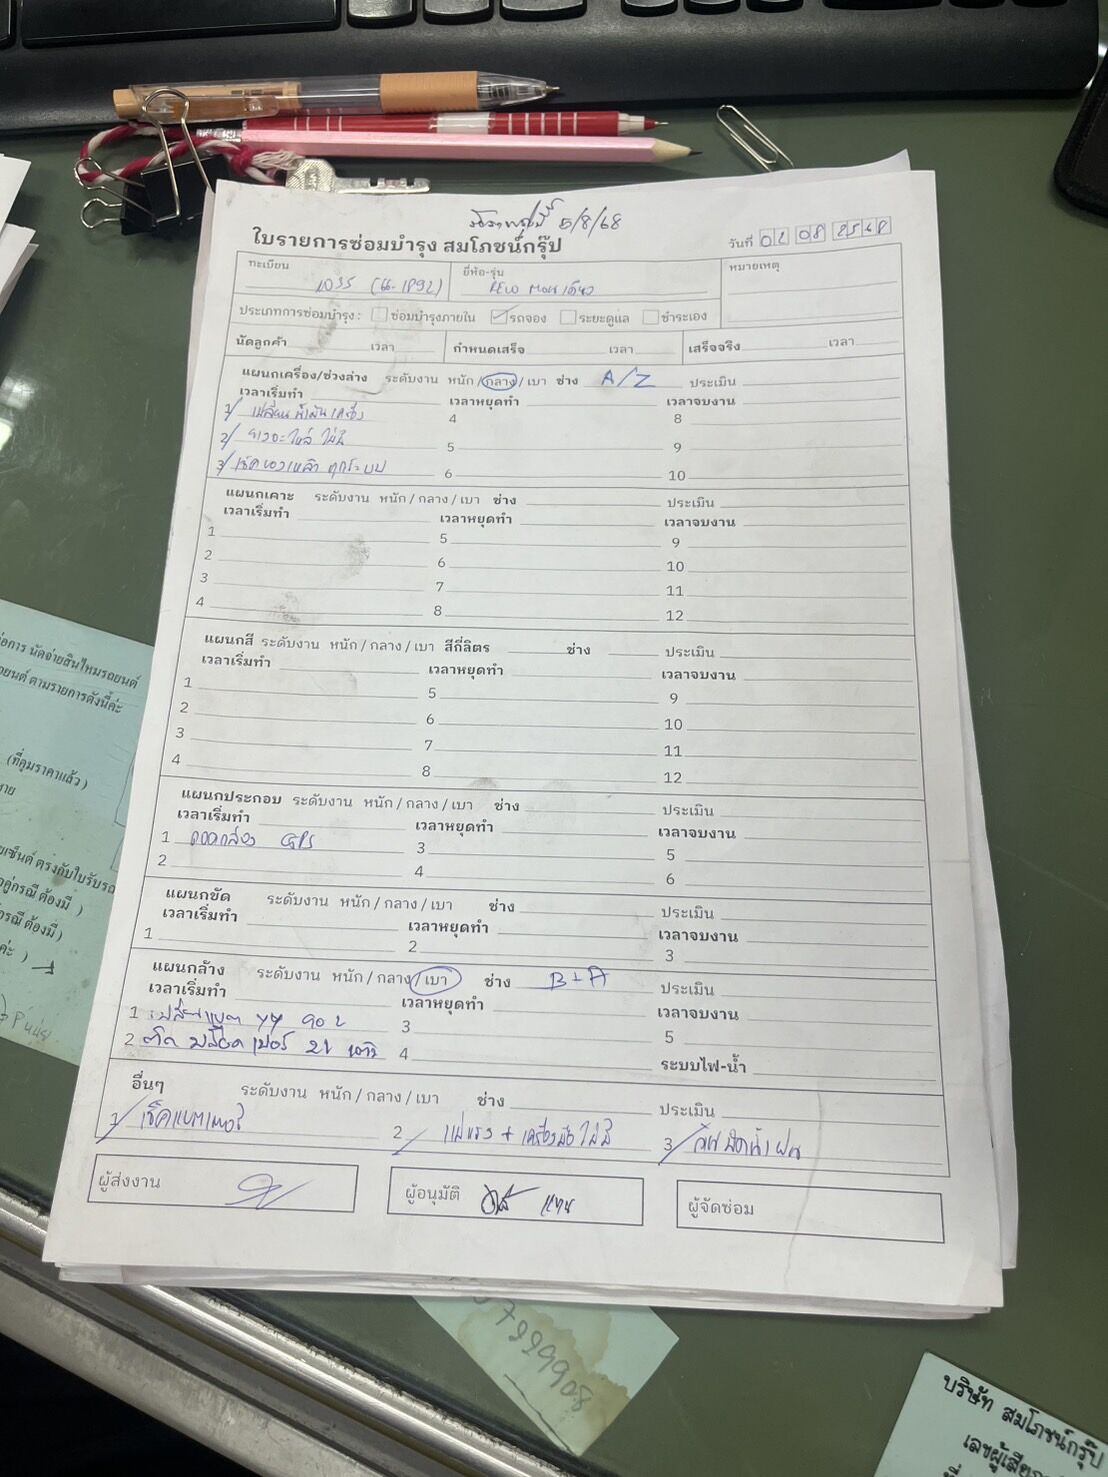 5/8/68
ใบรายการซ่อมบำรุง สมโภชน์กรุ๊ป
วันที่ 02 08 25
ทะเบียน 1035 (66-1892) ยี่ห้อ-รุ่น REVO ตอนเดียว หมายเหตุ
ประเภทการซ่อมบำรุง : ซ่อมบำรุงภายใน รถจอง ระยะดูแล ชำระเอง
นัดลูกค้า เวลา กำหนดเสร็จ เวลา เสร็จจริง เวลา
แผนกเครื่อง/ช่วงล่าง ระดับงาน หนัก / กลาง / เบา ช่าง A/Z ประเมิน
เวลาเริ่มทำ เวลาหยุดทำ เวลาจบงาน
1 เปลี่ยนน้ำมันเครื่อง 4 8
2 ยางอะไหล่ ไม่มี 5 9
3 เช็คของเหลว ทุกระบบ 6 10
แผนกเคาะ ระดับงาน หนัก / กลาง / เบา ช่าง ประเมิน
เวลาเริ่มทำ เวลาหยุดทำ เวลาจบงาน
1 5 9
2 6 10
3 7 11
4 8 12
แผนกสี ระดับงาน หนัก / กลาง / เบา สีกี่ลิตร ช่าง ประเมิน
เวลาเริ่มทำ เวลาหยุดทำ เวลาจบงาน
1 5 9
2 6 10
3 7 11
4 8 12
แผนกประกอบ ระดับงาน หนัก / กลาง / เบา ช่าง ประเมิน
เวลาเริ่มทำ เวลาหยุดทำ เวลาจบงาน
1 ถอดกล่อง GPS 3 5
2 4 6
แผนกขัด ระดับงาน หนัก / กลาง / เบา ช่าง ประเมิน
เวลาเริ่มทำ เวลาหยุดทำ เวลาจบงาน
1 2 3
แผนกล้าง ระดับงาน หนัก / กลาง / เบา ช่าง B+A ประเมิน
เวลาเริ่มทำ เวลาหยุดทำ เวลาจบงาน
1 90 L 3 5
2 ติด 4 ระบบไฟ-น้ำ
อื่นๆ ระดับงาน หนัก / กลาง / เบา ช่าง ประเมิน
1 เช็คแบตเตอรี่ 2 แม่แรง + เครื่องมือ ไม่มี 3
ผู้ส่งงาน ผู้อนุมัติ แทน ผู้จัดซ่อม
่อการ นัดจ่ายสินไหมรถยนต์
ถยนต์ ตามรายการดังนี้ค่ะ
(ที่คุมราคาแล้ว )
เซ็นต์ ตรงกับใบรับรถ
คู่กรณี ต้องมี )
กรณี ต้องมี )
ค่ะ )
บริษัท สมโภชน์กรุ๊ป